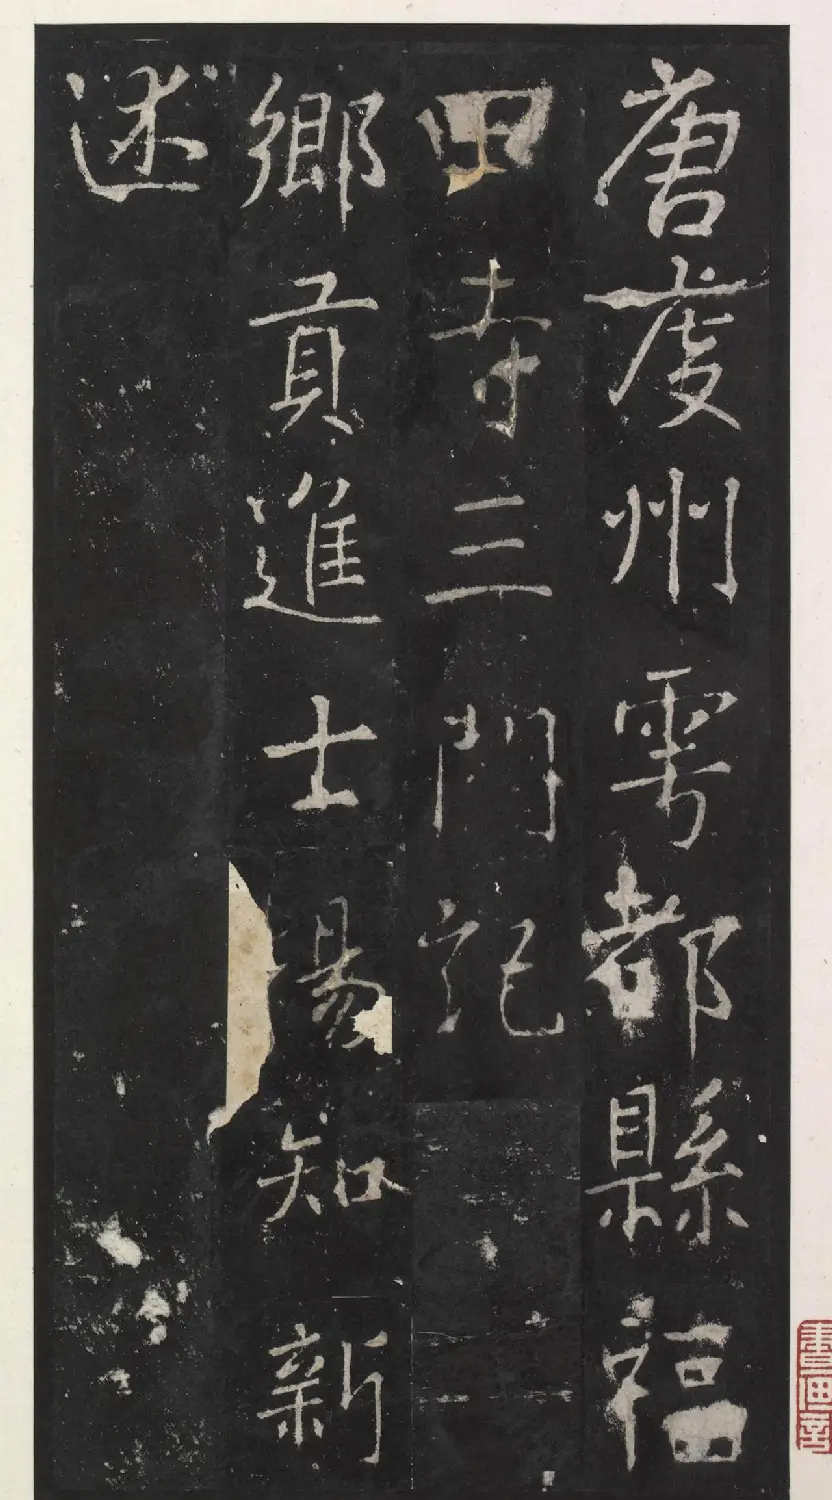 唐虔州雩都縣福
田寺三門記
鄉貢進士楊知新
述